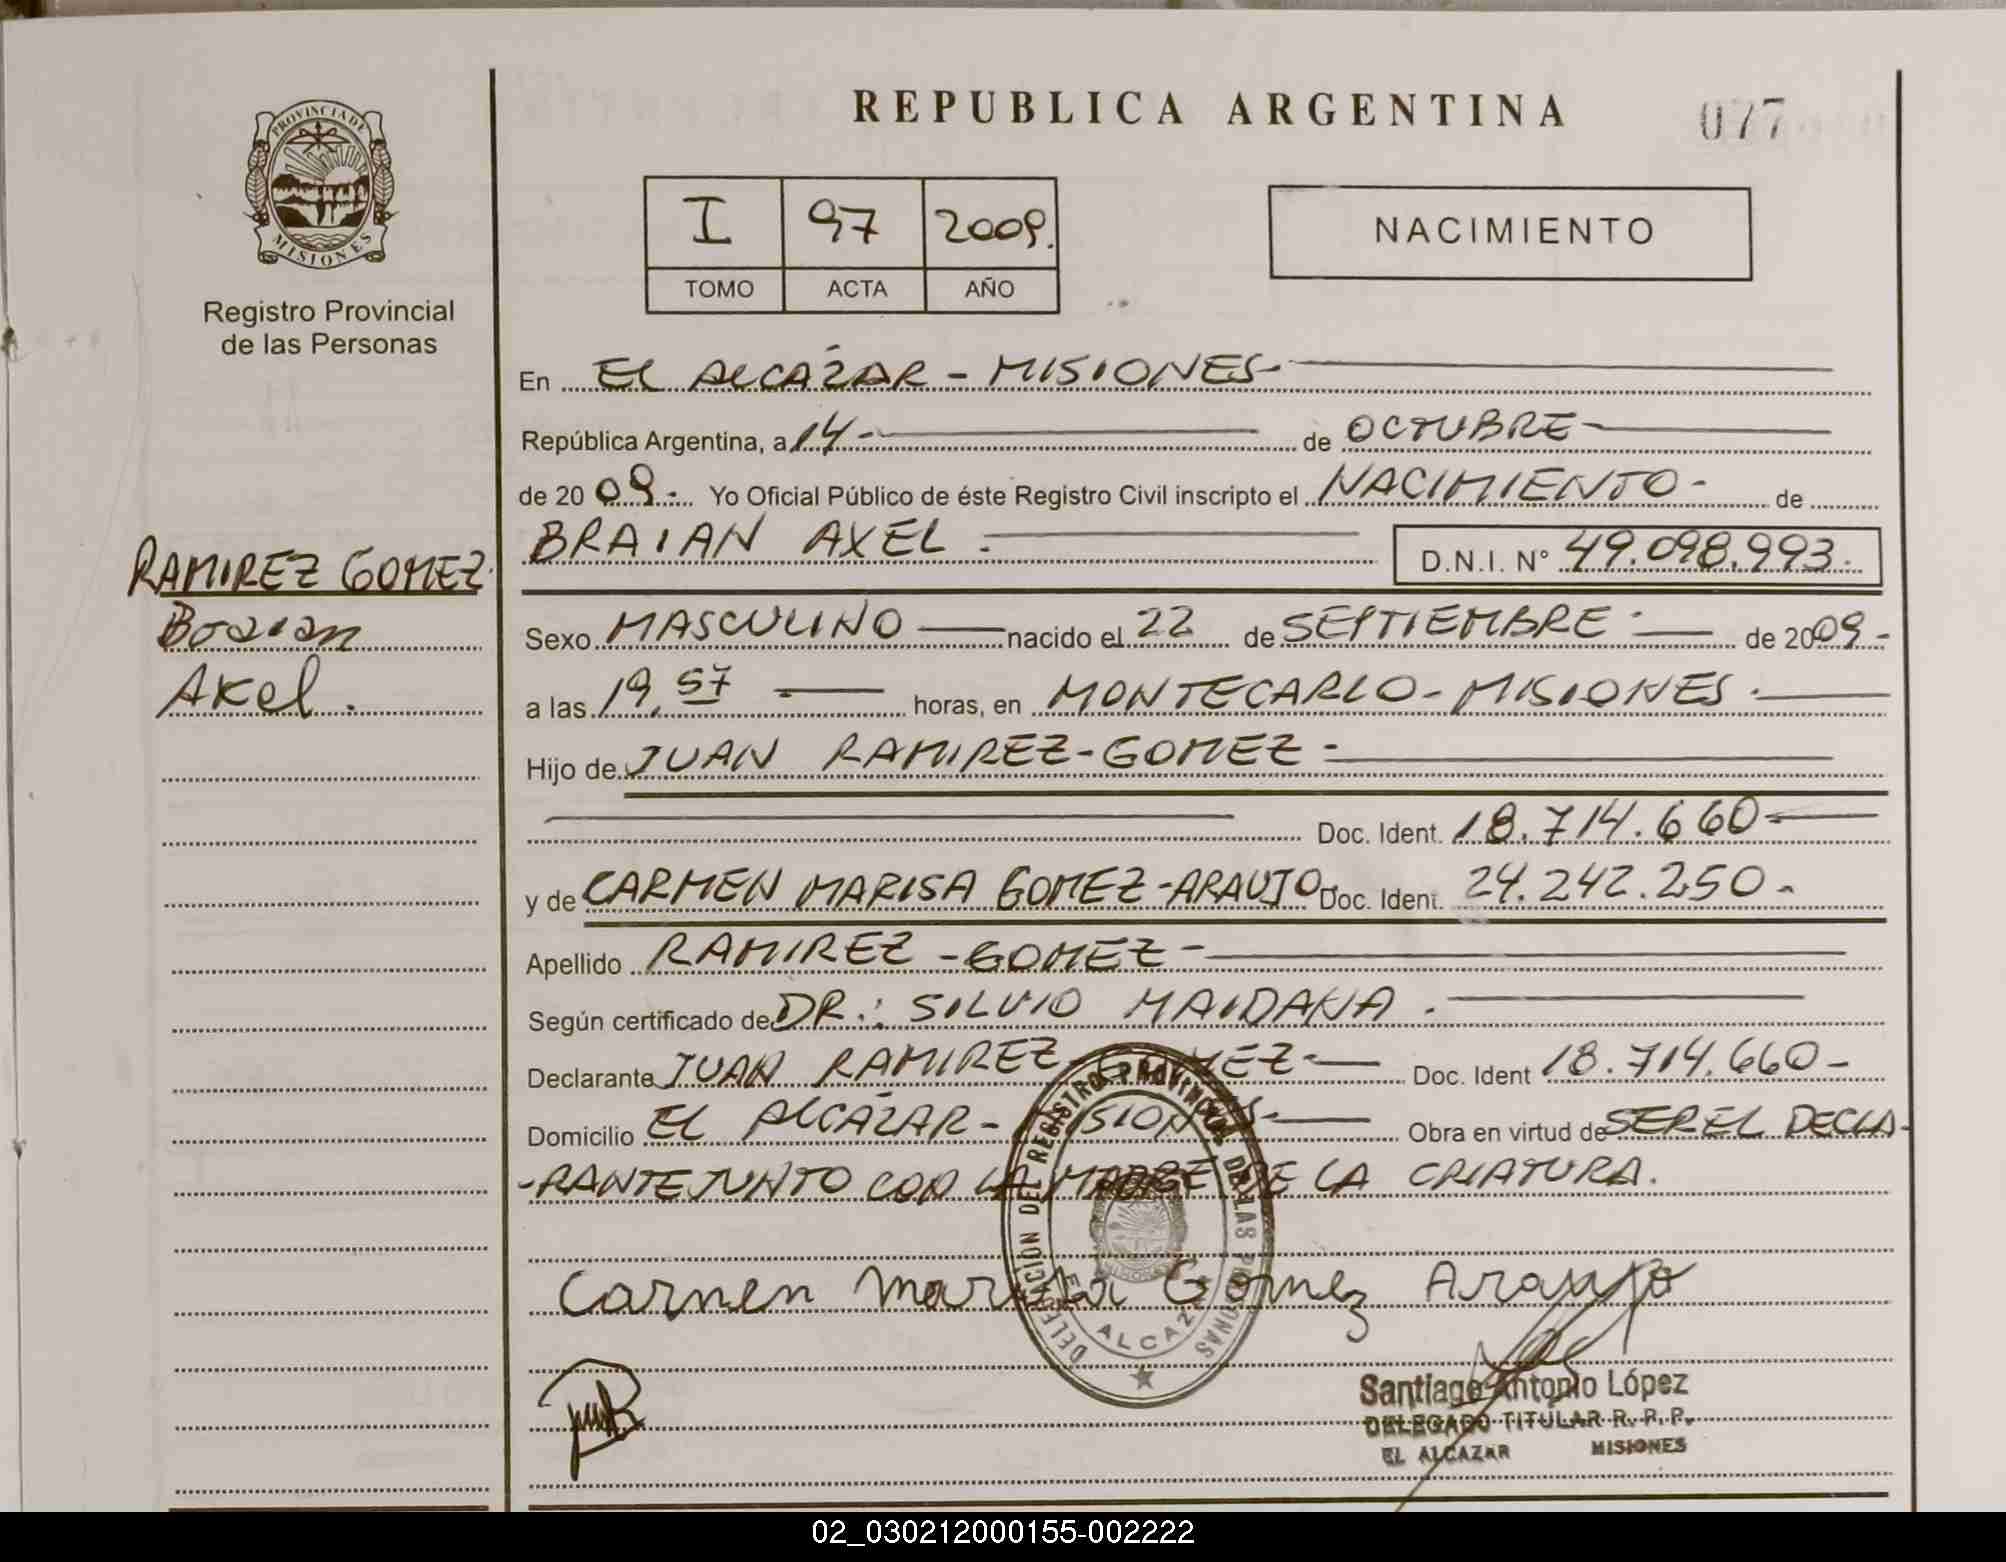 PROVINCIA DE
MISIONES
Registro Provincial
de las Personas
RAMIREZ GOMEZ.
Braian
Axel.
REPUBLICA ARGENTINA
077
I 97 2009.
TOMO ACTA AÑO
NACIMIENTO
En EL ALCÁZAR - MISIONES-
República Argentina, a 14- de OCTUBRE-
de 20 09.- Yo Oficial Público de éste Registro Civil inscripto el NACIMIENTO- de
BRAIAN AXEL.- D.N.I. N° 49.098.993.
Sexo MASCULINO — nacido el 22 de SEPTIEMBRE - de 2009-
a las 19,57 — horas, en MONTECARLO-MISIONES.
Hijo de JUAN RAMIREZ-GOMEZ-
Doc. Ident. 18.714.660-
y de CARMEN MARISA GOMEZ-ARAUJO Doc. Ident. 24.242.250-
Apellido RAMIREZ-GOMEZ-
Según certificado de DR.: SILVIO MAIDANA.
Declarante JUAN RAMIREZ-GOMEZ- Doc. Ident 18.714.660-
Domicilio EL ALCÁZAR- MISIONES- Obra en virtud de SER EL DECLA-
-RANTE JUNTO CON LA MADRE DE LA CRIATURA.
DELEGACION DEL REGISTRO PROVINCIAL DE LAS PERSONAS
EL ALCAZAR
Carmen Marisa Gomez Araujo
Santiago Antonio López
DELEGADO TITULAR R. P. P.
EL ALCAZAR MISIONES
02_030212000155-002222